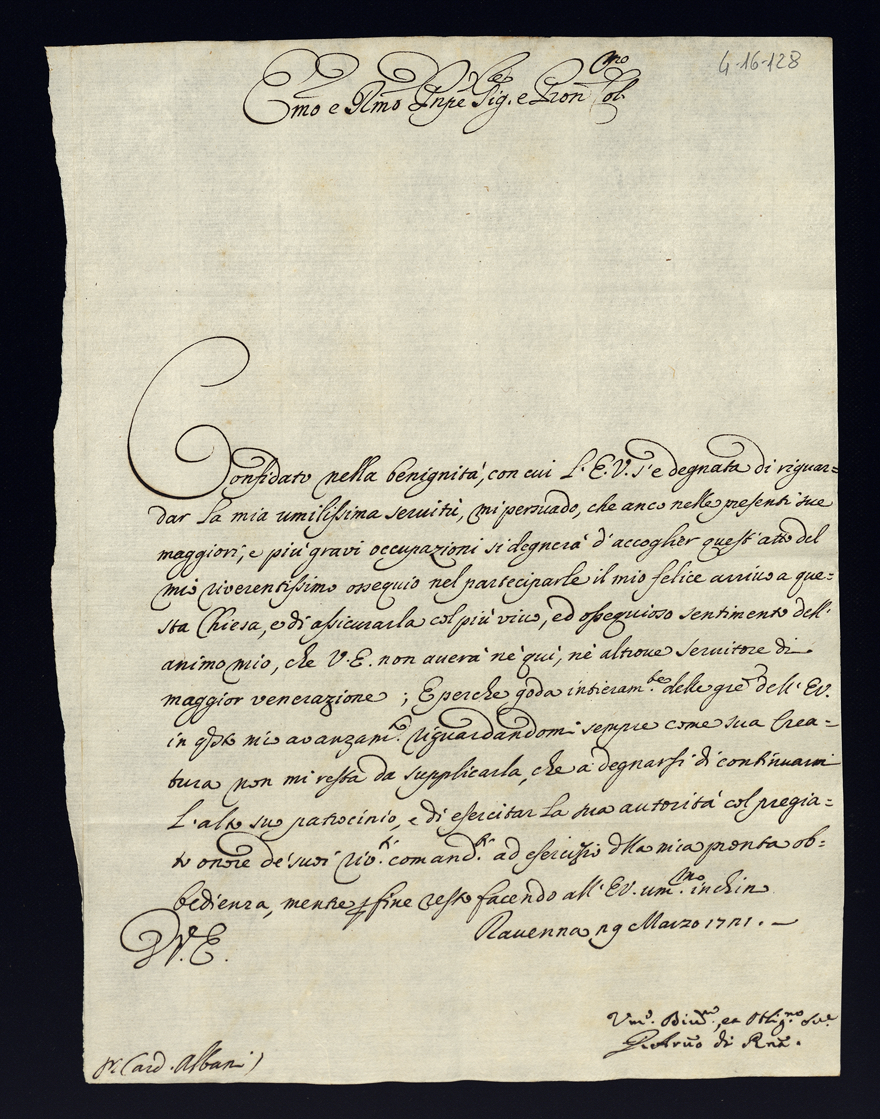 4-16-128
Emo e Rmo Sig.e e Pron Col.mo
Confidato nella benignità, con cui L'E.V. s'è degnata di riguar=
dar la mia umilissima servitù, mi persuado, che anco nelle presenti sue
maggiori, e più gravi occupazioni si degnerà d'accoglier quest'atto del
mio riverentissimo ossequio nel parteciparle il mio felice arrivo a que=
sta Chiesa, e di assicurarla col più vivo, ed ossequioso sentimento dell'
animo mio, che V.E. non averà nè quì, nè altrove servitore di
maggior venerazione ; E perche goda intieram.te delle gre dell'EV.
in qsto mio avanzam.to riguardandomi sempre come sua Crea=
tura non mi resta da supplicarla, che a degnarsi di continuarmi
L'alto suo patrocinio, e di esercitar la sua autorità col pregia=
to onore de' suoi riv.ti comand.ti ad esercizio dlla mia pronta ob=
bedienza, mentre p fine resto facendo all'EV. um.mo inchin
Ravenna 29 Marzo 1721.
D V.E.
Um.o Div.mo, ed Oblig.mo Sre
G. Arcivo di Rna.
Sr. Card. Albani)